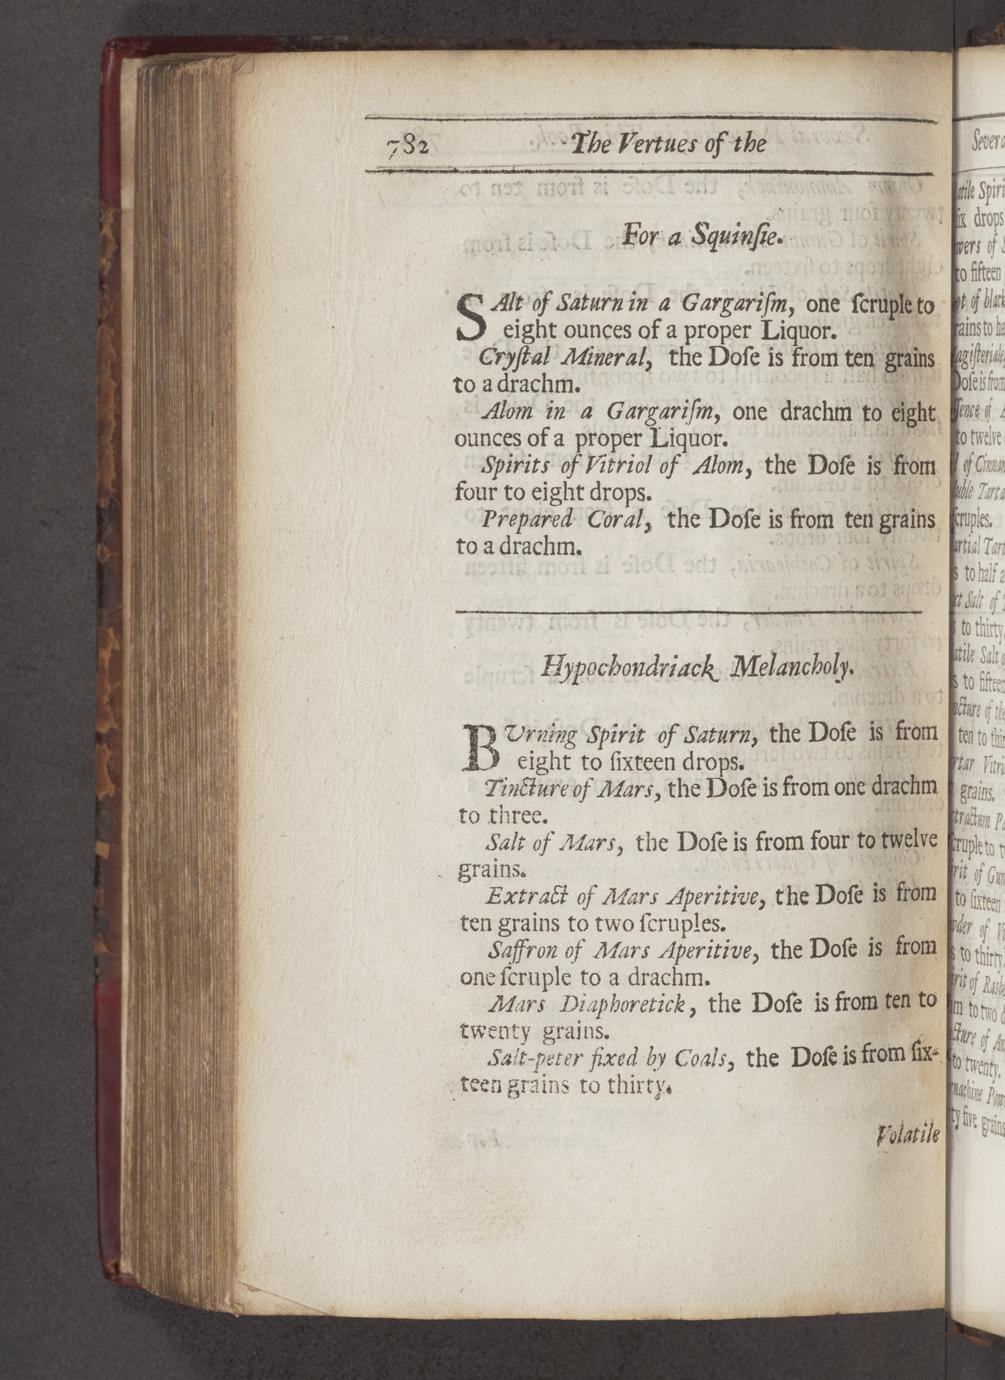 782 The Vertues of the
For a Squinſie.
SAlt of Saturn in a Gargariſm, one ſcruple to
eight ounces of a proper Liquor.
Cryſtal Mineral, the Doſe is from ten grains
to a drachm.
Alom in a Gargariſm, one drachm to eight
ounces of a proper Liquor.
Spirits of Vitriol of Alom, the Doſe is from
four to eight drops.
Prepared Coral, the Doſe is from ten grains
to a drachm.
Hypochondriack Melancholy.
BUrning Spirit of Saturn, the Doſe is from
eight to ſixteen drops.
Tincture of Mars, the Doſe is from one drachm
to three.
Salt of Mars, the Doſe is from four to twelve
grains.
Extract of Mars Aperitive, the Doſe is from
ten grains to two ſcruples.
Saffron of Mars Aperitive, the Doſe is from
one ſcruple to a drachm.
Mars Diaphoretick, the Doſe is from ten to
twenty grains.
Salt-peter fixed by Coals, the Doſe is from ſix-
teen grains to thirty.
Volatile
drops
to fifteen
of black
to twelve
ſcruples.
to half a
to thirty
Salt of
to fifteen
ten to
grains.
to ſixteen
to thirty
to two
to twenty.
five grains